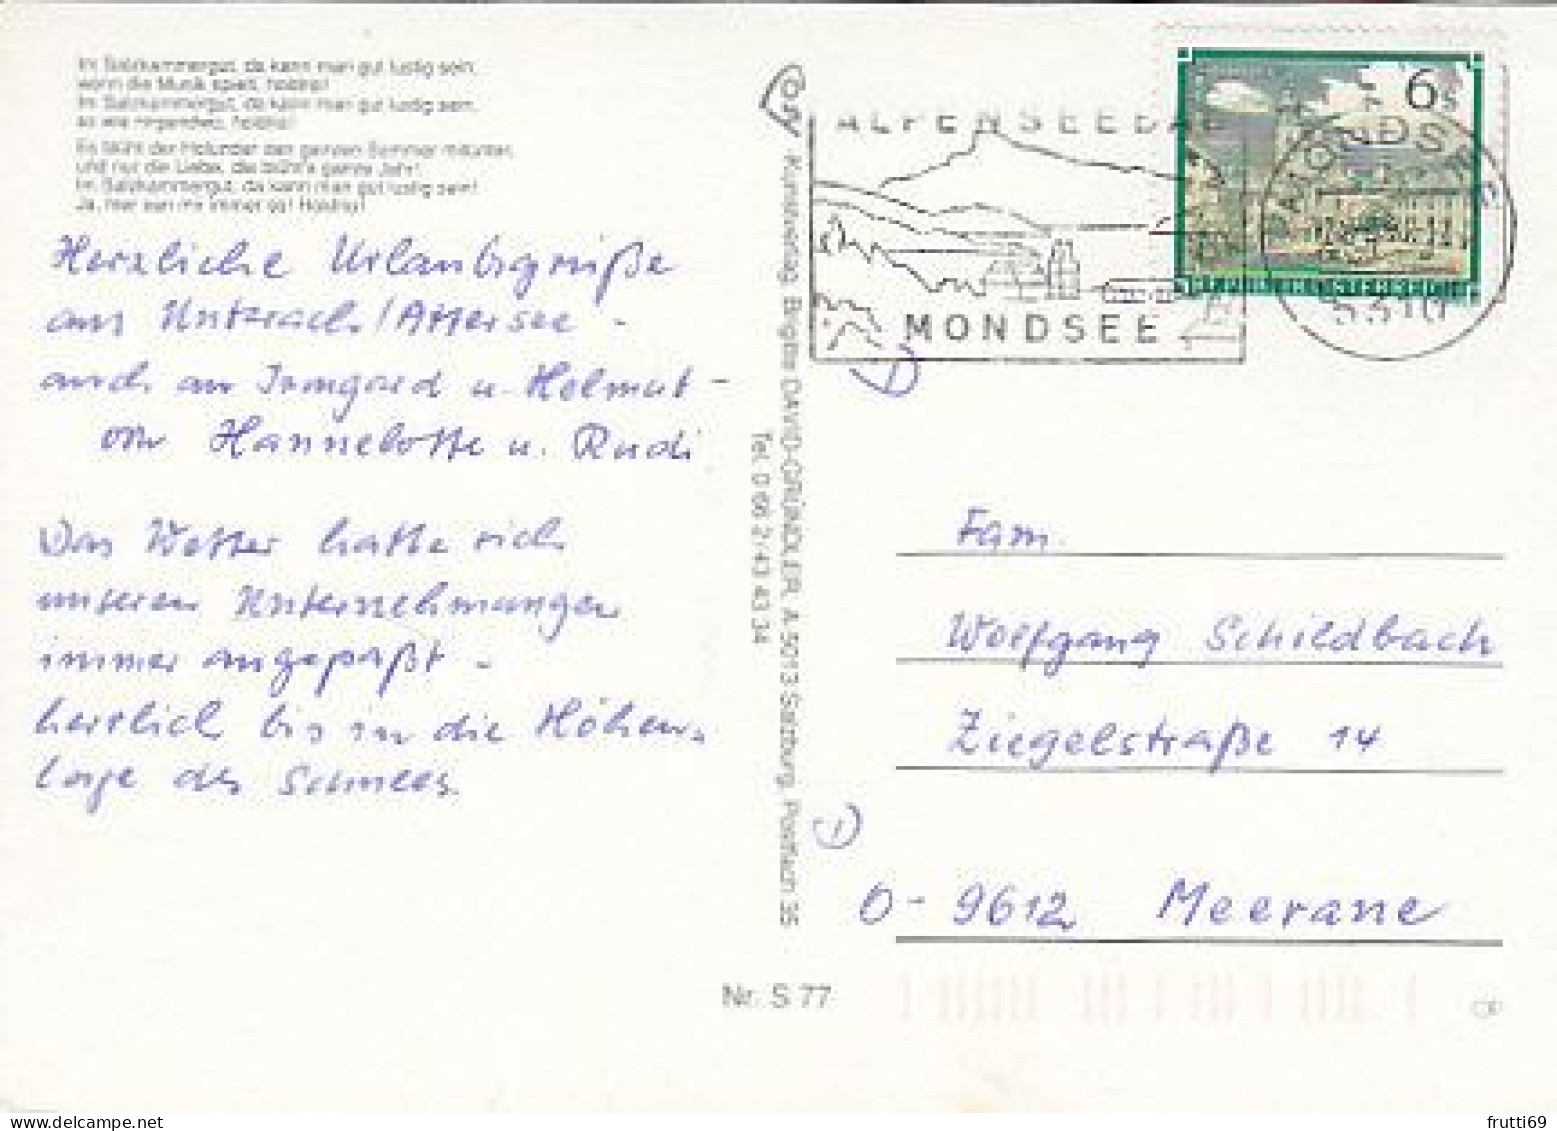 Im Salzkammergut, da kann man gut lustig sein,
wenn die Musik spielt, holdrio!
Im Salzkammergut, da kann man gut lustig sein,
so wie nirgendwo, holdrio!
Es blüht der Holunder den ganzen Sommer mitunter,
und nur die Liebe, die blüht's ganze Jahr!
Im Salzkammergut, da kann man gut lustig sein!
Ja, hier sein mir immer so! Holdrio!
Herzliche Urlaubsgrüße
aus Unterach/Attersee -
auch an Irmgard u. Helmut -
von Hannelotte u. Rudi
Das Wetter hatte sich
unseren Unternehmungen
immer angepaßt -
herrlich bis in die Höhen-
lage des Schnees.
Copy Kunstverlag Brigitte DAVID-GRÜNDLER, A 5013 Salzburg, Postfach 35
Tel. 0 66 2/43 43 34
Nr. S 77
ALPENSEEBAD
MONDSEE
6 S
REPUBLIK ÖSTERREICH
MONDSEE
5310
Fam.
Wolfgang Schildbach
Ziegelstraße 14
D
O-9612 Meerane
frutti69